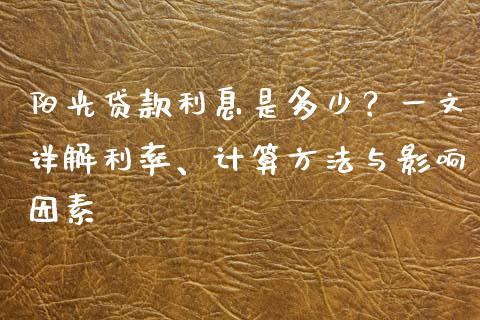 阳光贷款利息是多少？一文
详解利率、计算方法与影响
因素